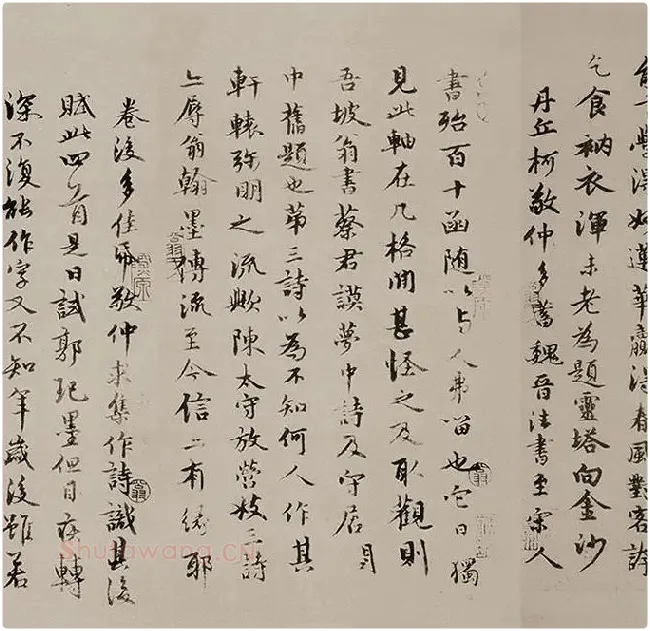 如蓮華贏得春風對客誇
乞食衲衣渾未老為題靈塔向金沙
丹丘柯敬仲多蓄魏晉法書至宋人
書殆百十函随以与人弗留也它日獨
見此軸在几格間甚怪之及取觀則
吾坡翁書蔡君謨夢中詩及守居閣
中舊題也第三詩以為不知何人作其
軒轅弥明之流歟陳太守放營妓三詩
亡辱翁翰墨轉流至今信亡有緣耶
卷後多佳帋敬仲求集作詩識其後
賦此四首是日試郭玘墨但目疾轉
深不復能作字又不知年歲後雖若
Shufawang.CN